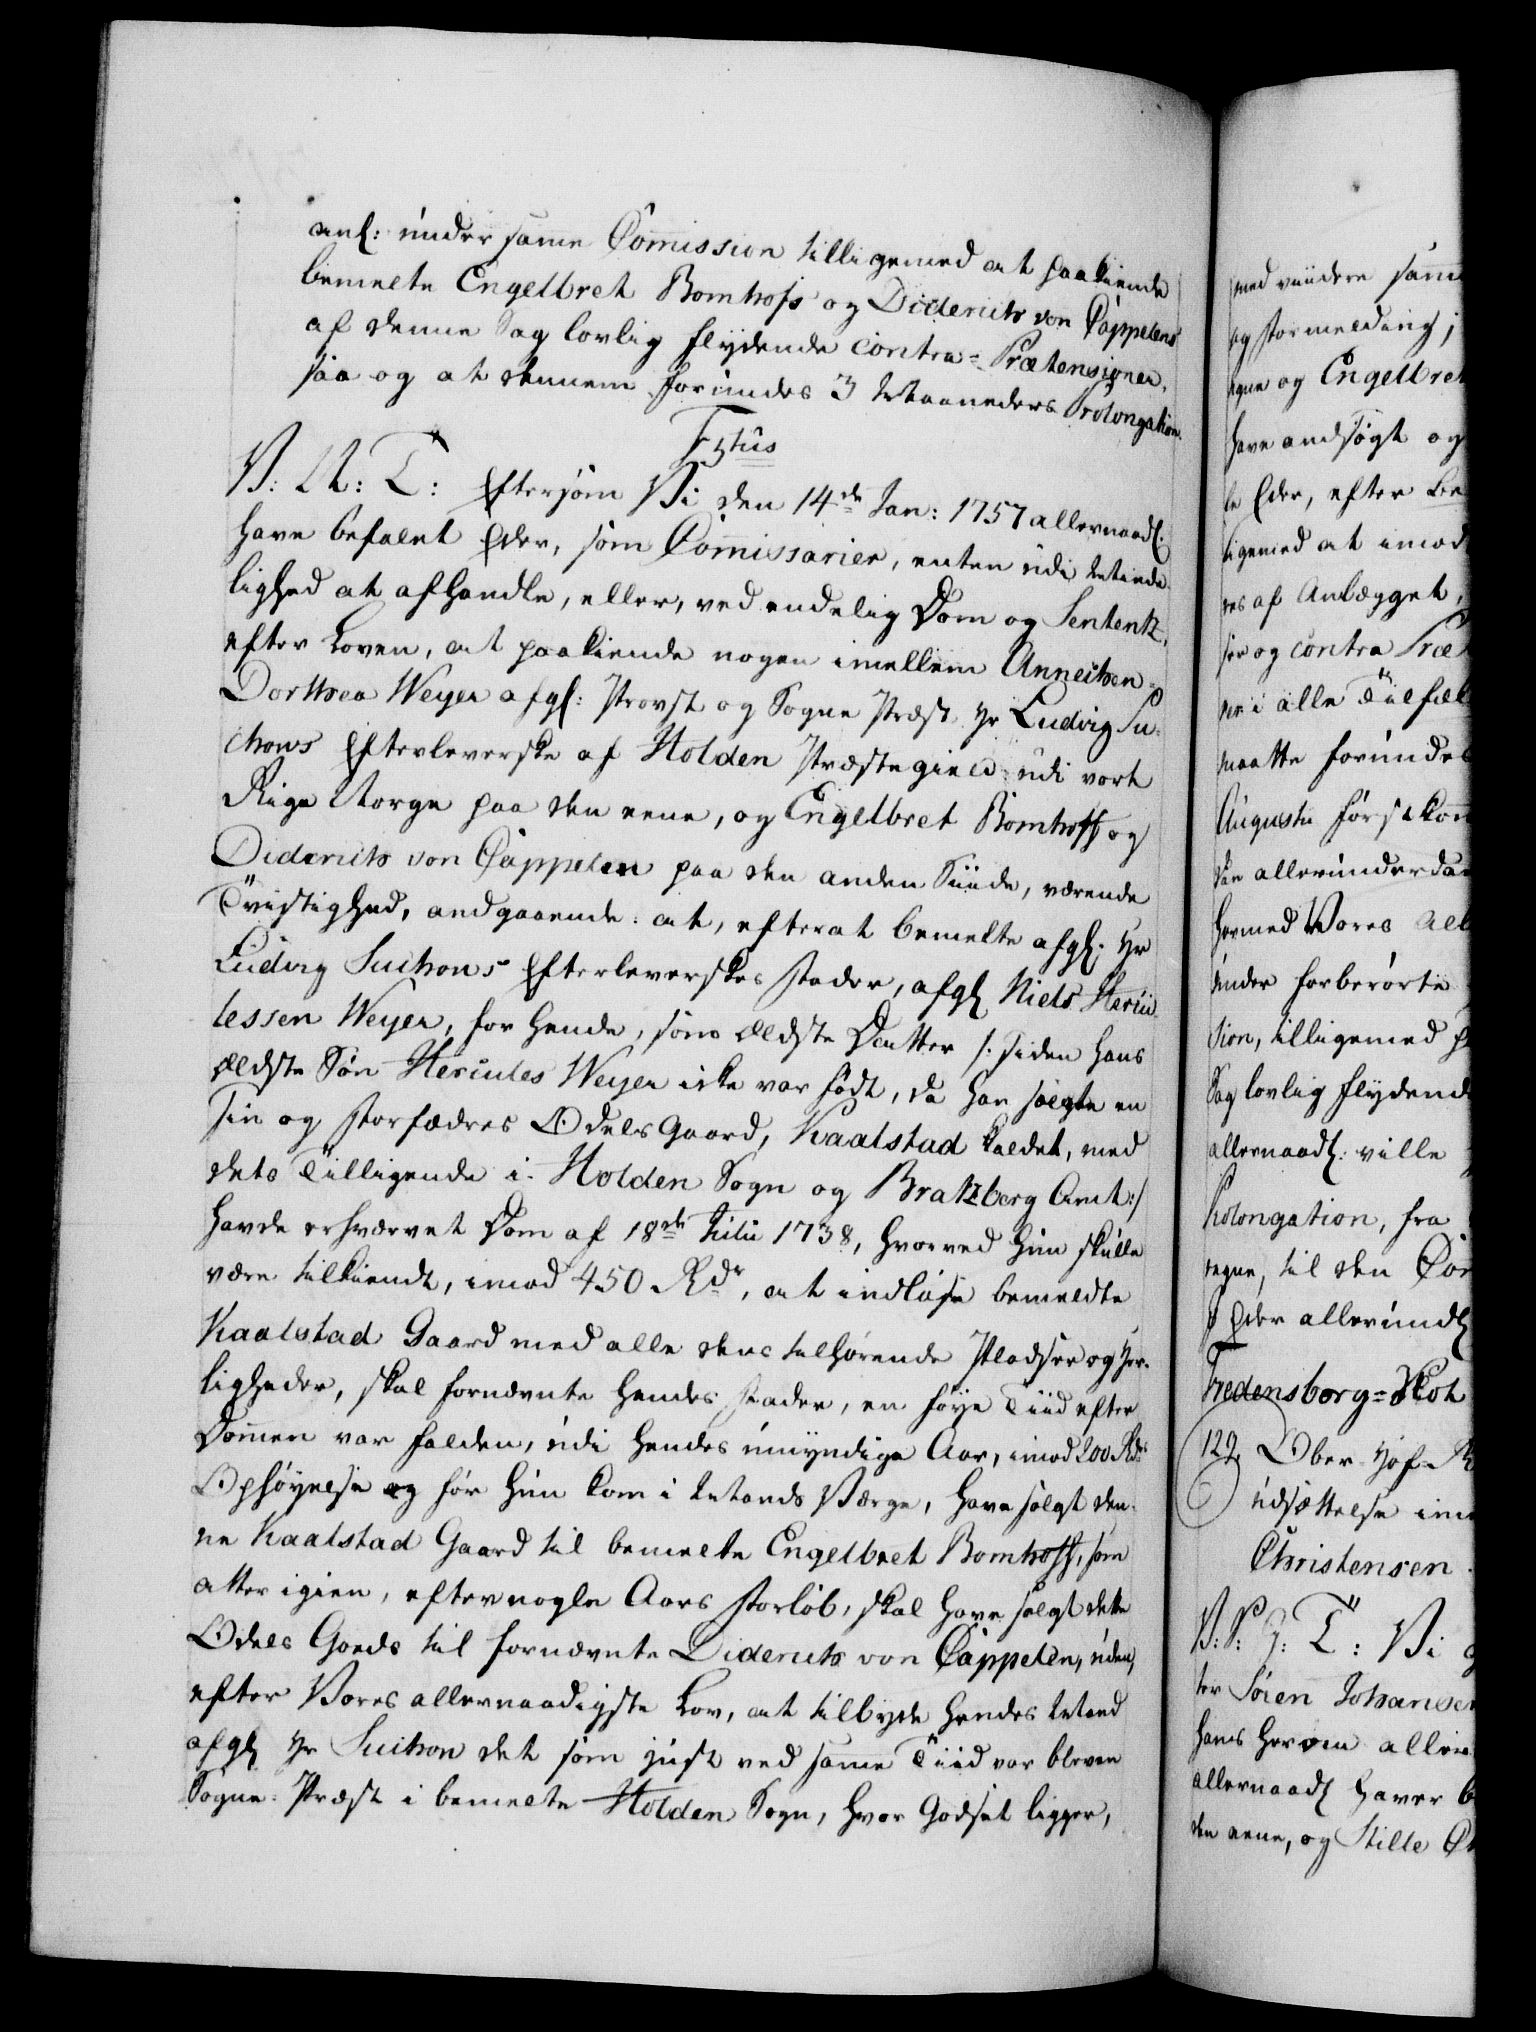 anl: under same Commission tilligemed at paakiende
bemelte Engelbret Bomhofs og Didericks von Cappelens
af denne Sag lovlig flydende contra-Prætensioner,
saa og at dennem forundes 3 Maaneders Prolongation.
V: A: T: Eftersom Vi den 14de Jan: 1757 allernaadl:
have befalet Eder, som Commissarier, enten udi Minde-
lighed at afhandle, eller, ved endelig Dom og Sententz,
efter Loven, at paakiende nogen imellem Annichen-
Dorthea Weyer afgl: Provst og Sogne Præst Hr Ludvig Su-
chows Efterleverske af Holden Præstegield udi vort
Rige Norge paa den eene, og Engelbret Bomhoff og
Diderich von Cappelen paa den anden Siide, værende
Tvistighed, andgaaende: at, efterat bemelte afgl: Hr
Ludvig Suchows Efterleverskes Fader, afgl Niels Hercu-
lessen Weyer, for hende, som ældste Datter /: siden hans
ældste Søn Hercules Weyer icke var født, da han solgte en
sin og Forfædres Odels Gaard, Kaalstad kaldet, med
dets Tilligende i Holden Sogn og Bratzberg Amt:/
havde erhværvet Dom af 18de Julii 1738, hvorved hun skulle
være tilkiendt, imod 450 Rdr, at indløse bemeldte
Kaalstad Gaard med alle dens tilhørende Pladser og Her-
ligheder, skal fornævnte hendes Fader, en føye Tiid efter
Dommen var falden, udi hendes umyndige Aar, imod 200 Rdrs
Ophøyelse og før hun kom i Mands Værge, have solgt den-
ne Kaalstad Gaard til bemelte Engelbret Bomhoff, som
atter igien, efter nogle Aars Forløb, skal have solgt dette
Odels Goeds til fornævnte Diderich von Cappelen, uden,
efter Vores allernaadigste Lov, at tilbyde hendes Mand
afgl Hr Suchow det som just ved samme Tiid var bleven
Sogne-Præst i bemelte Holden Sogn, hvor Godset ligger,
med viidere samm
og Formelding;
egne og Engelbret
have andsøgt og
le Eder, efter be
ligemed at imod
res af Anlægget,
ser og contra Præ
ner i alle Tilfæl
maatte forundes
Augusti førstkom
dan allerunderda
hermed Vores all
under forberørte
sion, tilligemed
Sag lovlig flydend
allernaadl: ville
Prolongation, fra
regne, til den
Eder allerundl
Fredensborg-Slot
129. Ober-Hof-M
udsættelse im
Christensen
V: P: G: T: Vi g
ter Søren Johansen
hans herom aller
allernaadl haver b
den eene, og Stille